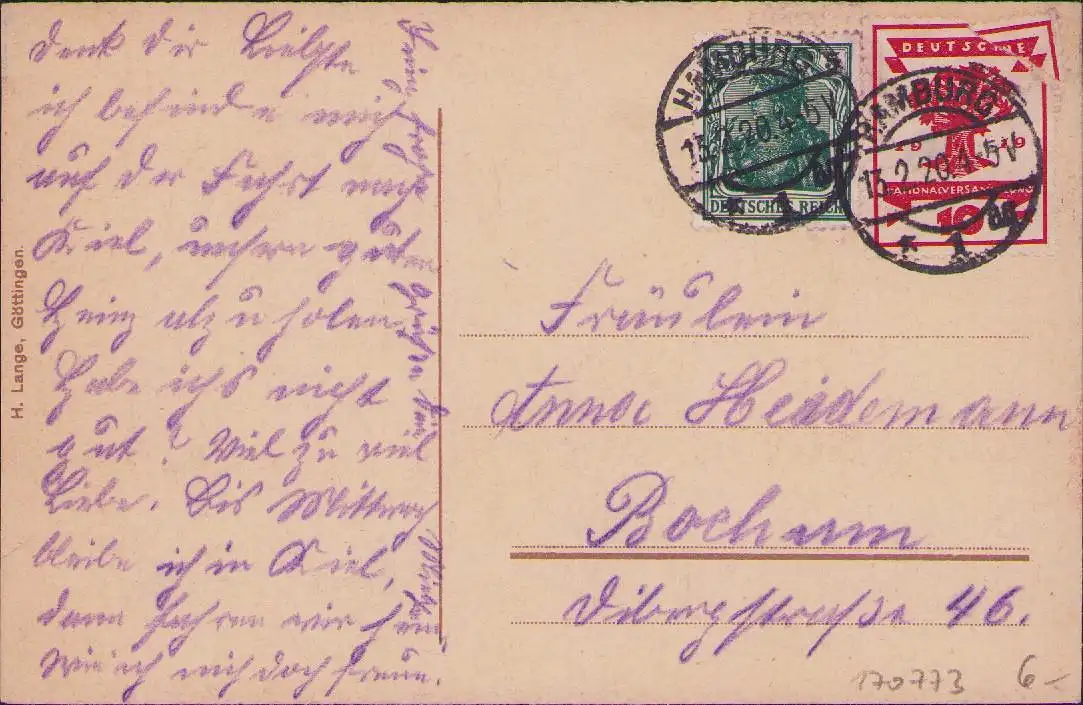 denk dir Liebste
ich befinde mich
auf der Fahrt nach
Kiel, unsern guten
Heinz abzuholen.
Habe ichs nicht
gut? Viel zu viel
Liebe. Bis Mittwoch
bleibe ich in Kiel,
dann fahren wir heim
wie ich mich doch freue.
H. Lange, Göttingen.
HAMBURG
13.2.20.4-5V
* 1
DEUTSCHES REICH
HAMBURG
13.2.20.4-5V
* 1
DEUTSCHE
19 19
NATIONALVERSAMMLUNG
10
Fräulein
Anna Heidemann
Bochum
Dibergstraße 46.
170773 6-